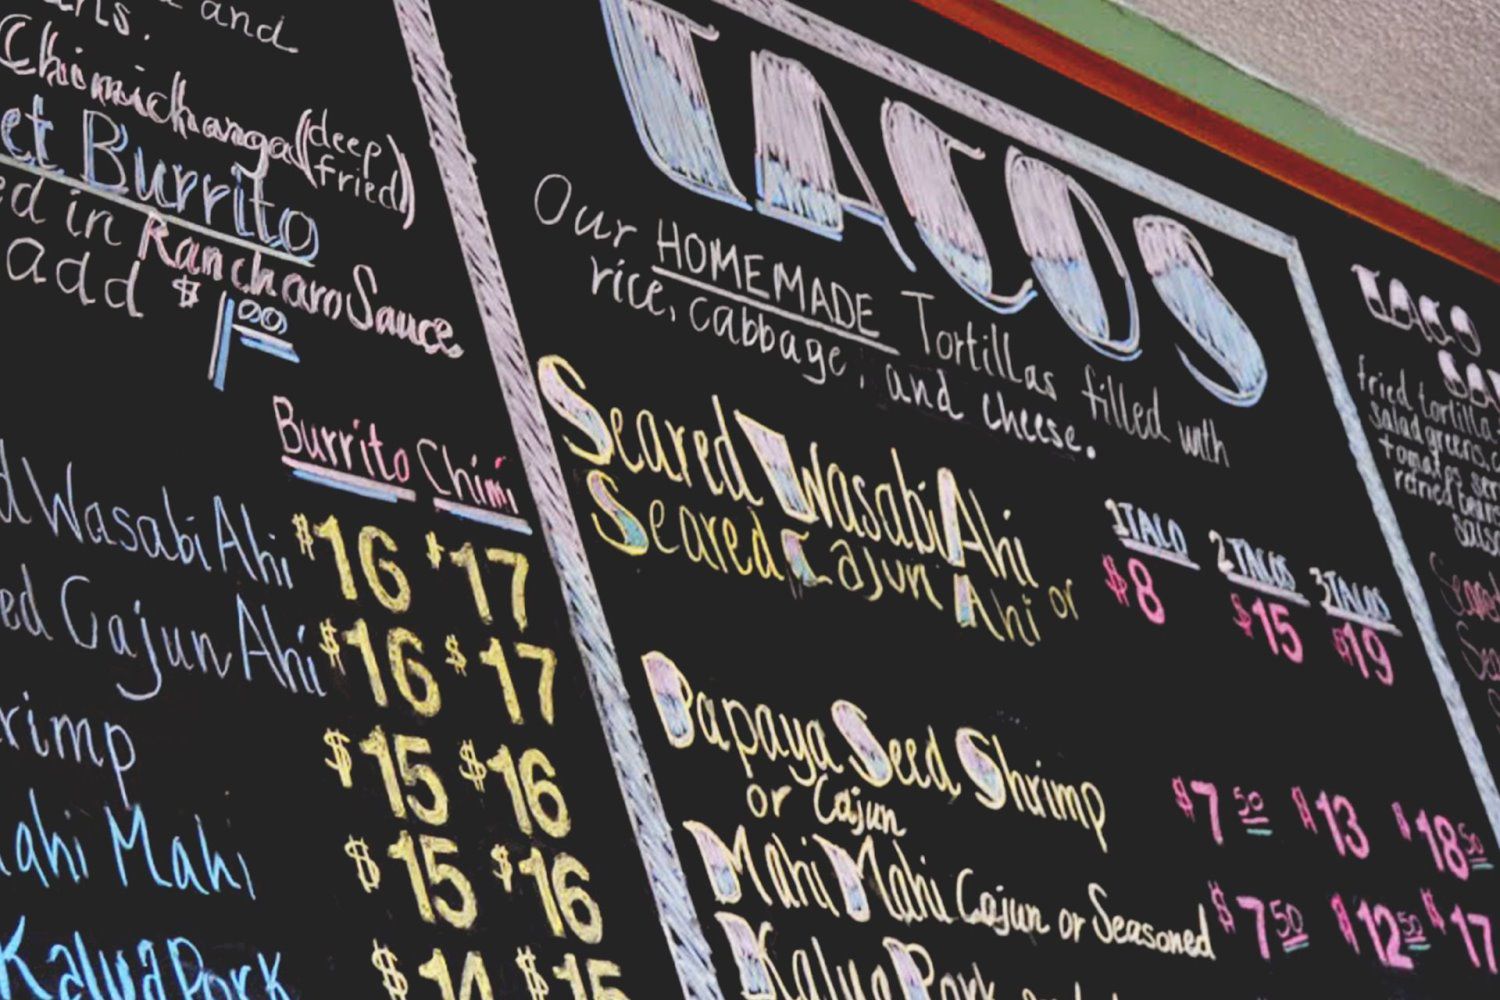 and
Chimichanga (deep fried)
Wet Burrito
in Rancharo Sauce
add $1.00
Burrito Chimi
Wasabi Ahi $16 $17
Cajun Ahi $16 $17
$15 $16
Mahi $15 $16
Kalua Pork $14 $15
TACOS
Our HOMEMADE Tortillas filled with
rice, cabbage, and cheese.
1 TACO 2 TACOS 3 TACOS
Seared Wasabi Ahi or
Seared Cajun Ahi $8 $15 $19
Papaya Seed Shrimp
or Cajun $7 50 $13 $18 50
Mahi Mahi Cajun or Seasoned $7 50 $12 50 $17
Kalua Pork
TACO
fried tortilla
salad greens,